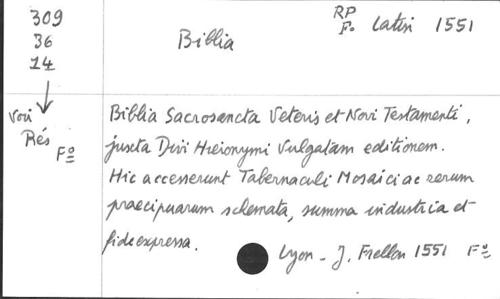 309
36
14
Biblia
RP
Fo Latin 1551
voir
Rés
Fº
Biblia Sacrosancta Veteris et Novi Testamenti,
juxta Divi Hieronymi Vulgatam editionem.
Hic accesserunt Tabernaculi Mosaici ac rerum
praecipuarum schemata, summa industria et
fide expressa.
Lyon - J. Frellon 1551 Fº